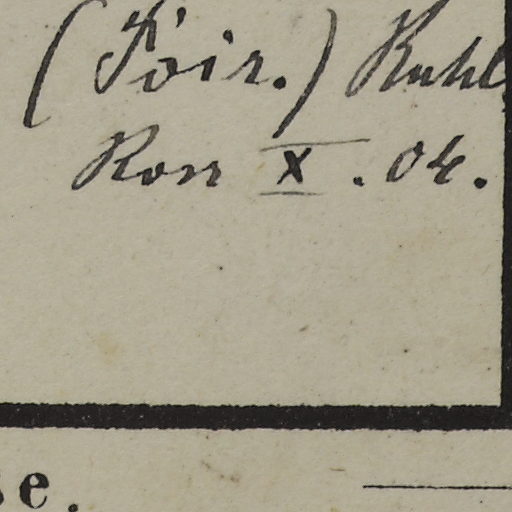 (Poir.) Kuhl
Ron X. 04.
se.